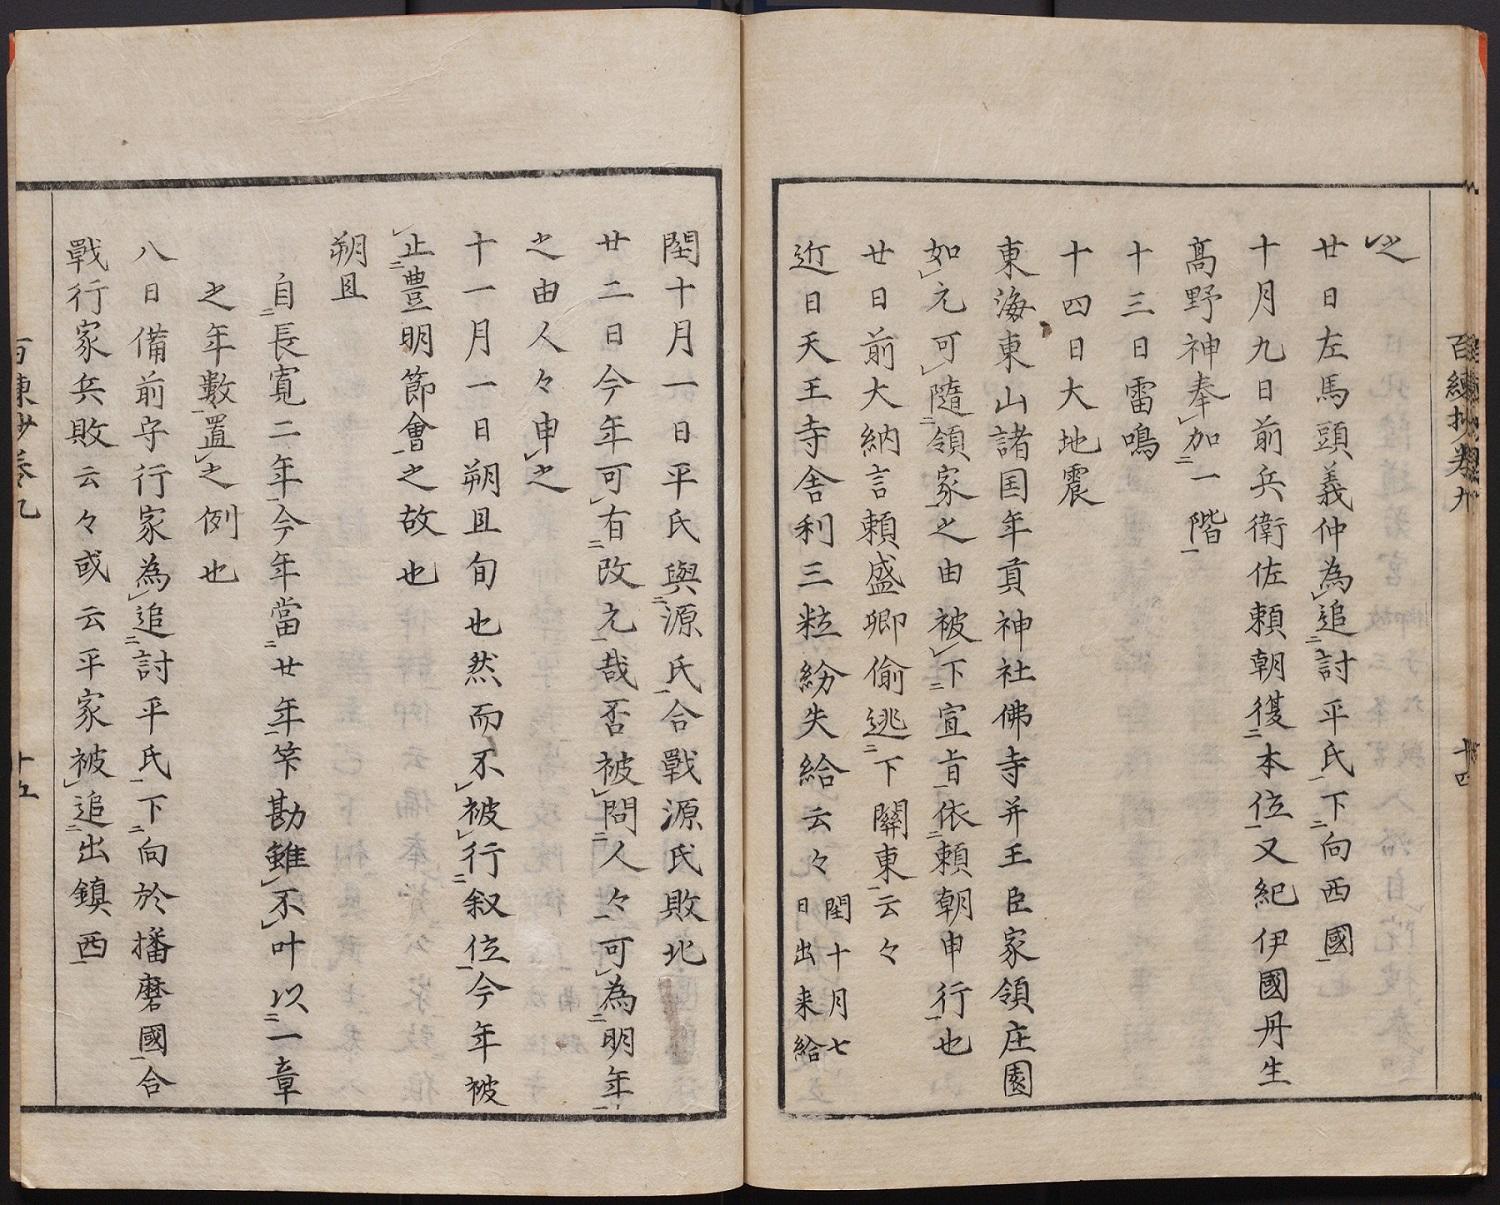 之
廿日左馬頭義仲為追討平氏下向西國
十月九日前兵衛佐頼朝復本位又紀伊國丹生
髙野神奉加一階
十三日雷鳴
十四日大地震
東海東山諸国年貢神社佛寺并王臣家領庄園
如元可隨領家之由被下宣旨依頼朝申行也
廿日前大納言頼盛卿偷逃下關東云々
近日天王寺舎利三粒紛失給云々閏十月七
日出来給
百練抄巻九
十四
閏十月一日平氏與源氏合戰源氏敗北
廿二日今年可有改元哉否被問人々可為明年
之由人々申之
十一月一日朔旦旬也然而不被行叙位今年被
止豊明節會之故也
朔旦
自長寛二年今年當廿年笇勘雖不叶以一章
之年數置之例也
八日備前守行家為追討平氏下向於播磨國合
戰行家兵敗云々或云平家被追出鎮西
百練抄巻九
十五